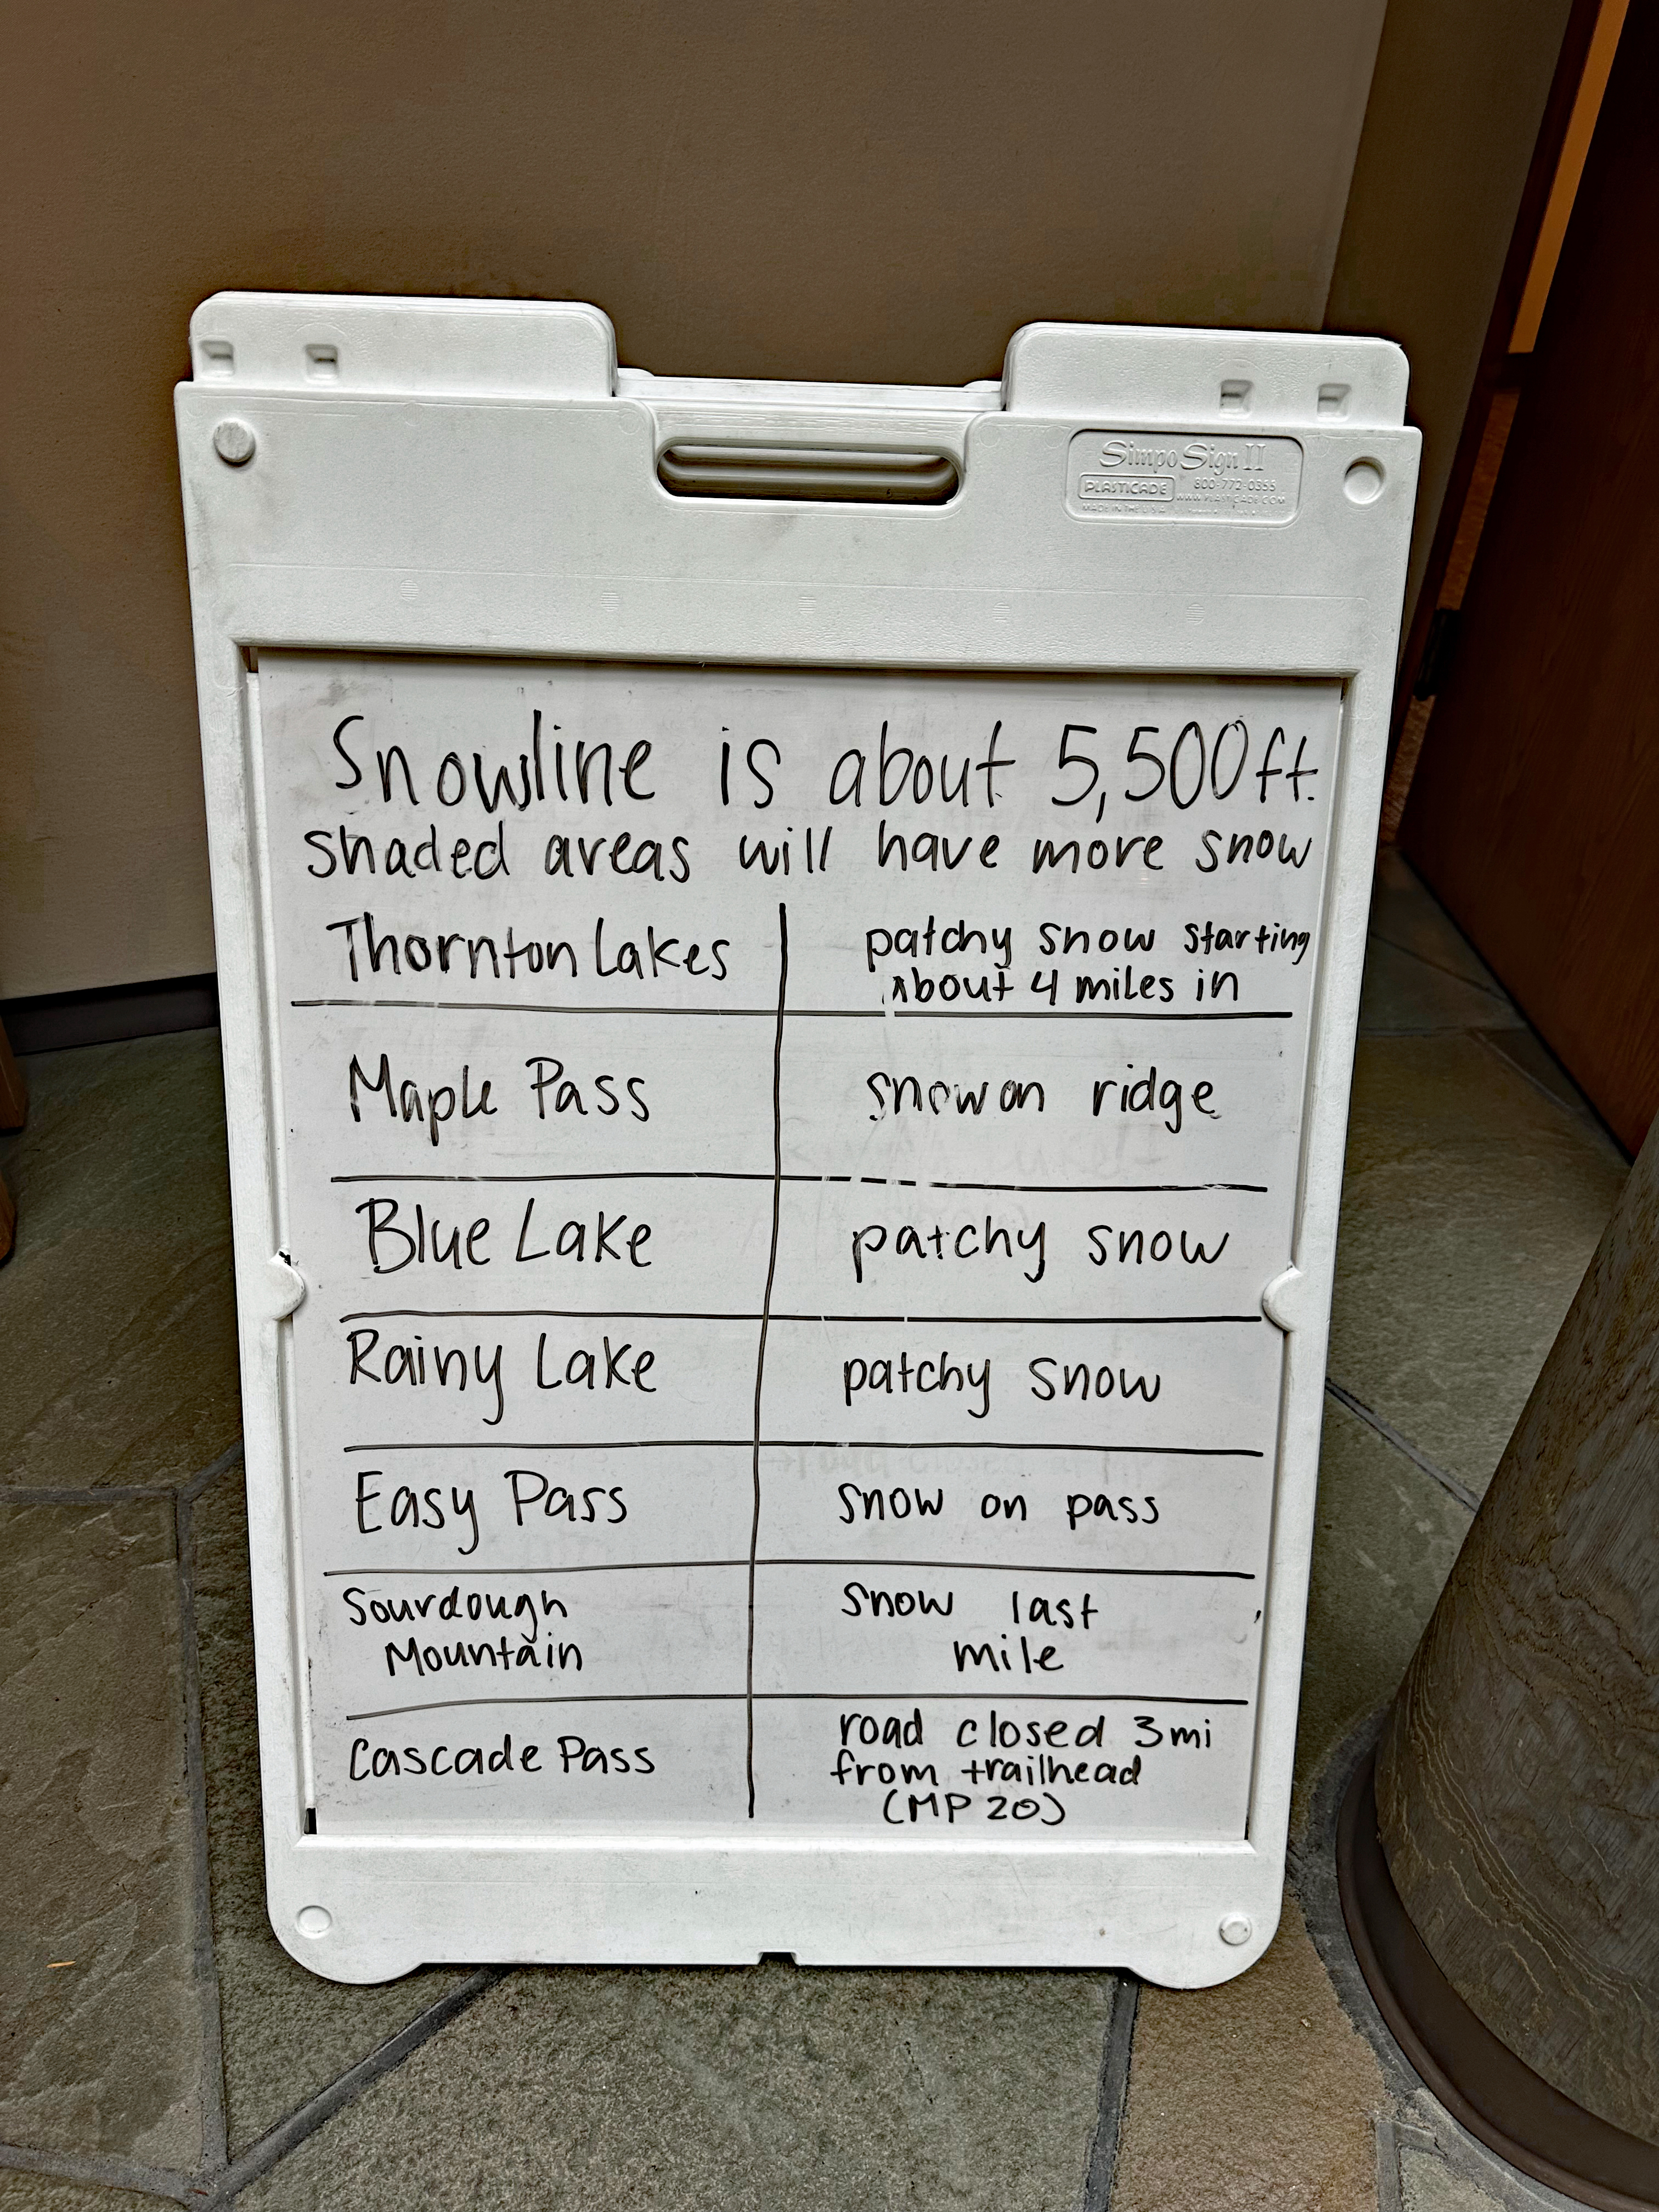 SimpoSign II
PLASTICADE
800-772-0355
WWW.PLASTICADE.COM
MADE IN THE U.S.A.
Snowline is about 5,500ft.
shaded areas will have more snow
Thornton Lakes
patchy snow starting
about 4 miles in
Maple Pass
snow on ridge
Blue Lake
patchy snow
Rainy Lake
patchy snow
Easy Pass
snow on pass
Sourdough
Mountain
snow last
mile
Cascade Pass
road closed 3mi
from trailhead
(MP 20)